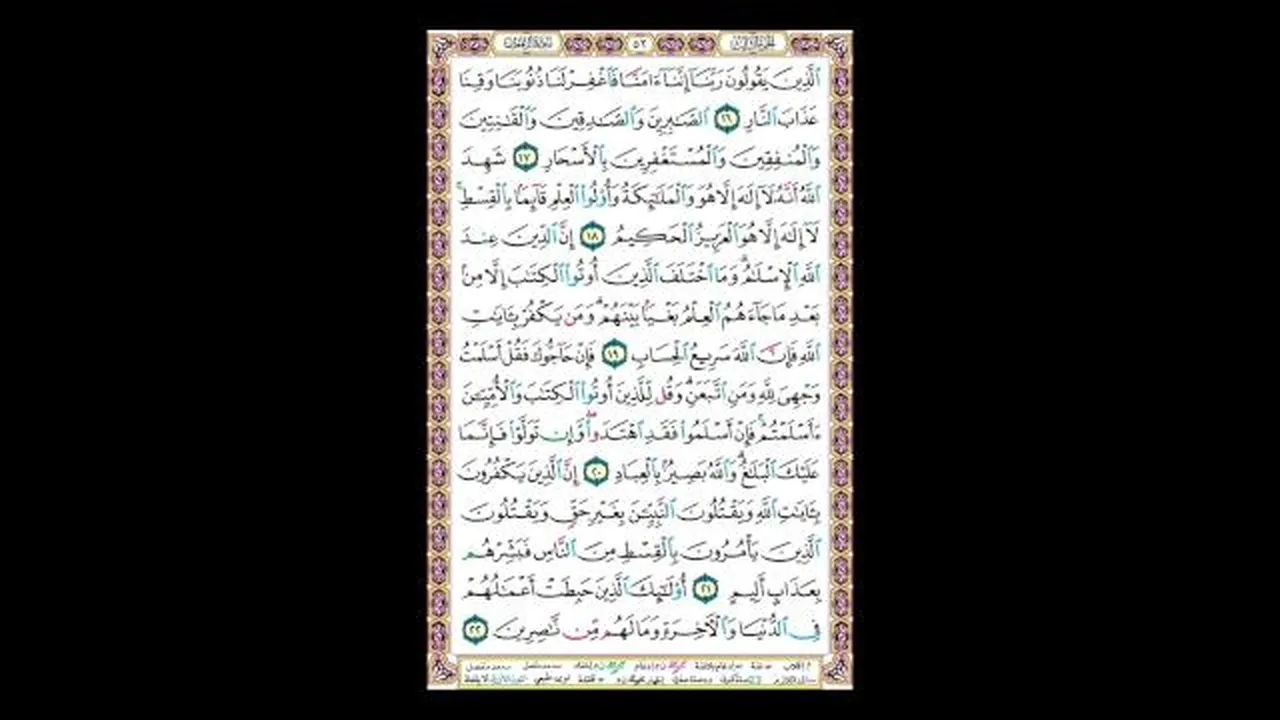 ٥٢
ٱلَّذِينَ يَقُولُونَ رَبَّنَآ إِنَّنَآ ءَامَنَّا فَٱغْفِرْ لَنَا ذُنُوبَنَا وَقِنَا
عَذَابَ ٱلنَّارِ ١٦ ٱلصَّٰبِرِينَ وَٱلصَّٰدِقِينَ وَٱلْقَٰنِتِينَ
وَٱلْمُنفِقِينَ وَٱلْمُسْتَغْفِرِينَ بِٱلْأَسْحَارِ ١٧ شَهِدَ
ٱللَّهُ أَنَّهُۥ لَآ إِلَٰهَ إِلَّا هُوَ وَٱلْمَلَٰٓئِكَةُ وَأُو۟لُوا۟ ٱلْعِلْمِ قَآئِمًۢا بِٱلْقِسْطِ ۚ
لَآ إِلَٰهَ إِلَّا هُوَ ٱلْعَزِيزُ ٱلْحَكِيمُ ١٨ إِنَّ ٱلدِّينَ عِندَ
ٱللَّهِ ٱلْإِسْلَٰمُ ۗ وَمَا ٱخْتَلَفَ ٱلَّذِينَ أُوتُوا۟ ٱلْكِتَٰبَ إِلَّا مِنۢ
بَعْدِ مَا جَآءَهُمُ ٱلْعِلْمُ بَغْيًۢا بَيْنَهُمْ ۗ وَمَن يَكْفُرْ بِـَٔايَٰتِ
ٱللَّهِ فَإِنَّ ٱللَّهَ سَرِيعُ ٱلْحِسَابِ ١٩ فَإِنْ حَآجُّوكَ فَقُلْ أَسْلَمْتُ
وَجْهِىَ لِلَّهِ وَمَنِ ٱتَّبَعَنِ ۗ وَقُل لِّلَّذِينَ أُوتُوا۟ ٱلْكِتَٰبَ وَٱلْأُمِّيِّـۧنَ
ءَأَسْلَمْتُمْ ۚ فَإِنْ أَسْلَمُوا۟ فَقَدِ ٱهْتَدَوا۟ ۖ وَّإِن تَوَلَّوْا۟ فَإِنَّمَا
عَلَيْكَ ٱلْبَلَٰغُ ۗ وَٱللَّهُ بَصِيرٌۢ بِٱلْعِبَادِ ٢٠ إِنَّ ٱلَّذِينَ يَكْفُرُونَ
بِـَٔايَٰتِ ٱللَّهِ وَيَقْتُلُونَ ٱلنَّبِيِّـۧنَ بِغَيْرِ حَقٍّ وَيَقْتُلُونَ
ٱلَّذِينَ يَأْمُرُونَ بِٱلْقِسْطِ مِنَ ٱلنَّاسِ فَبَشِّرْهُم
بِعَذَابٍ أَلِيمٍ ٢١ أُو۟لَٰٓئِكَ ٱلَّذِينَ حَبِطَتْ أَعْمَٰلُهُمْ
فِى ٱلدُّنْيَا وَٱلْءَاخِرَةِ وَمَا لَهُم مِّن نَّٰصِرِينَ ٢٢